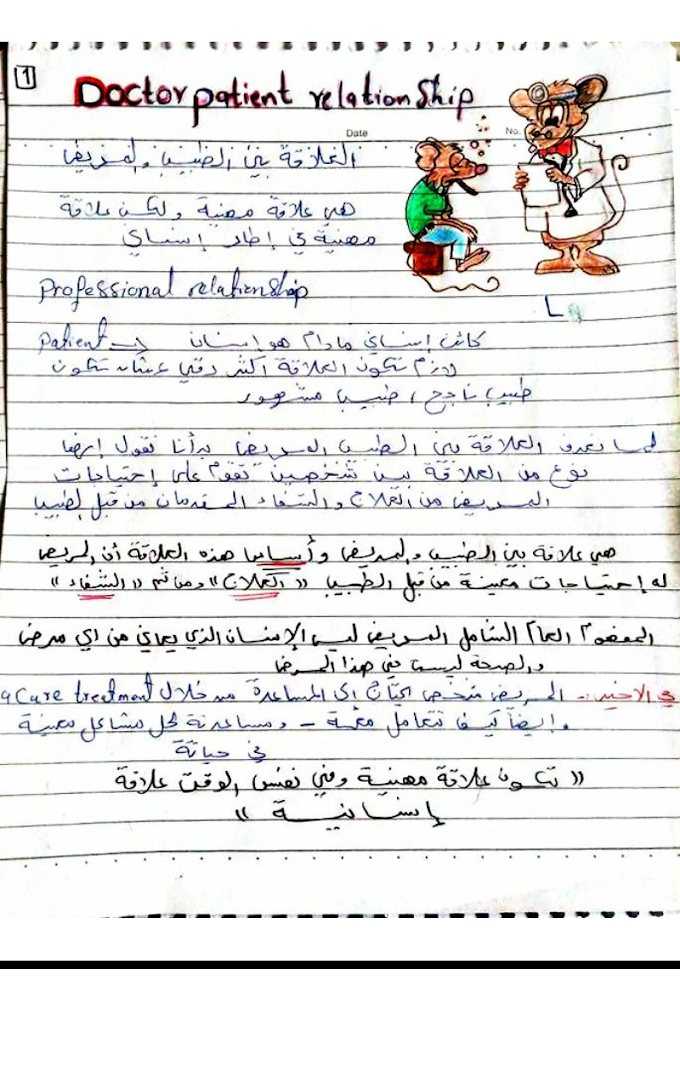 1
Doctor patient relationship
Date
No.
العلاقة بين الطبيب والمريض
هي علاقة مهنية ولكن علاقة
مهنية في إطار إنساني
Professional relationship
L
Patient → كائن إنساني مادام هو إنسان
لازم تكون العلاقة أكثر رقي عشان تكون
طبيب ناجح ، طبيب مشهور
لما نعرف العلاقة بين الطبيب المريض بدأنا نقول إنها
نوع من العلاقة بين شخصين تقوم على إحتياجات
المريض من العلاج والشفاء المقدمان من قبل لطبيب
هي علاقة بين الطبيب والمريض وأساس هذه العلاقة أن المريض
له إحتياجات معينة من قبل الطبيب "العلاج" ومن ثم "الشفاء"
المفهوم العام الشامل المريض ليس الإنسان الذي يعاني من اي مرض
والصحة ليست في هذا المرض
في الاخير :- المريض شخص يحتاج الى المساعدة من خلال Care treatment
وايضاً كيف تتعامل معه - ومساعدته لحل مشاكل معينة
في حياتة
" تكون علاقة مهنية وفي نفس الوقت علاقة
إنسانية "